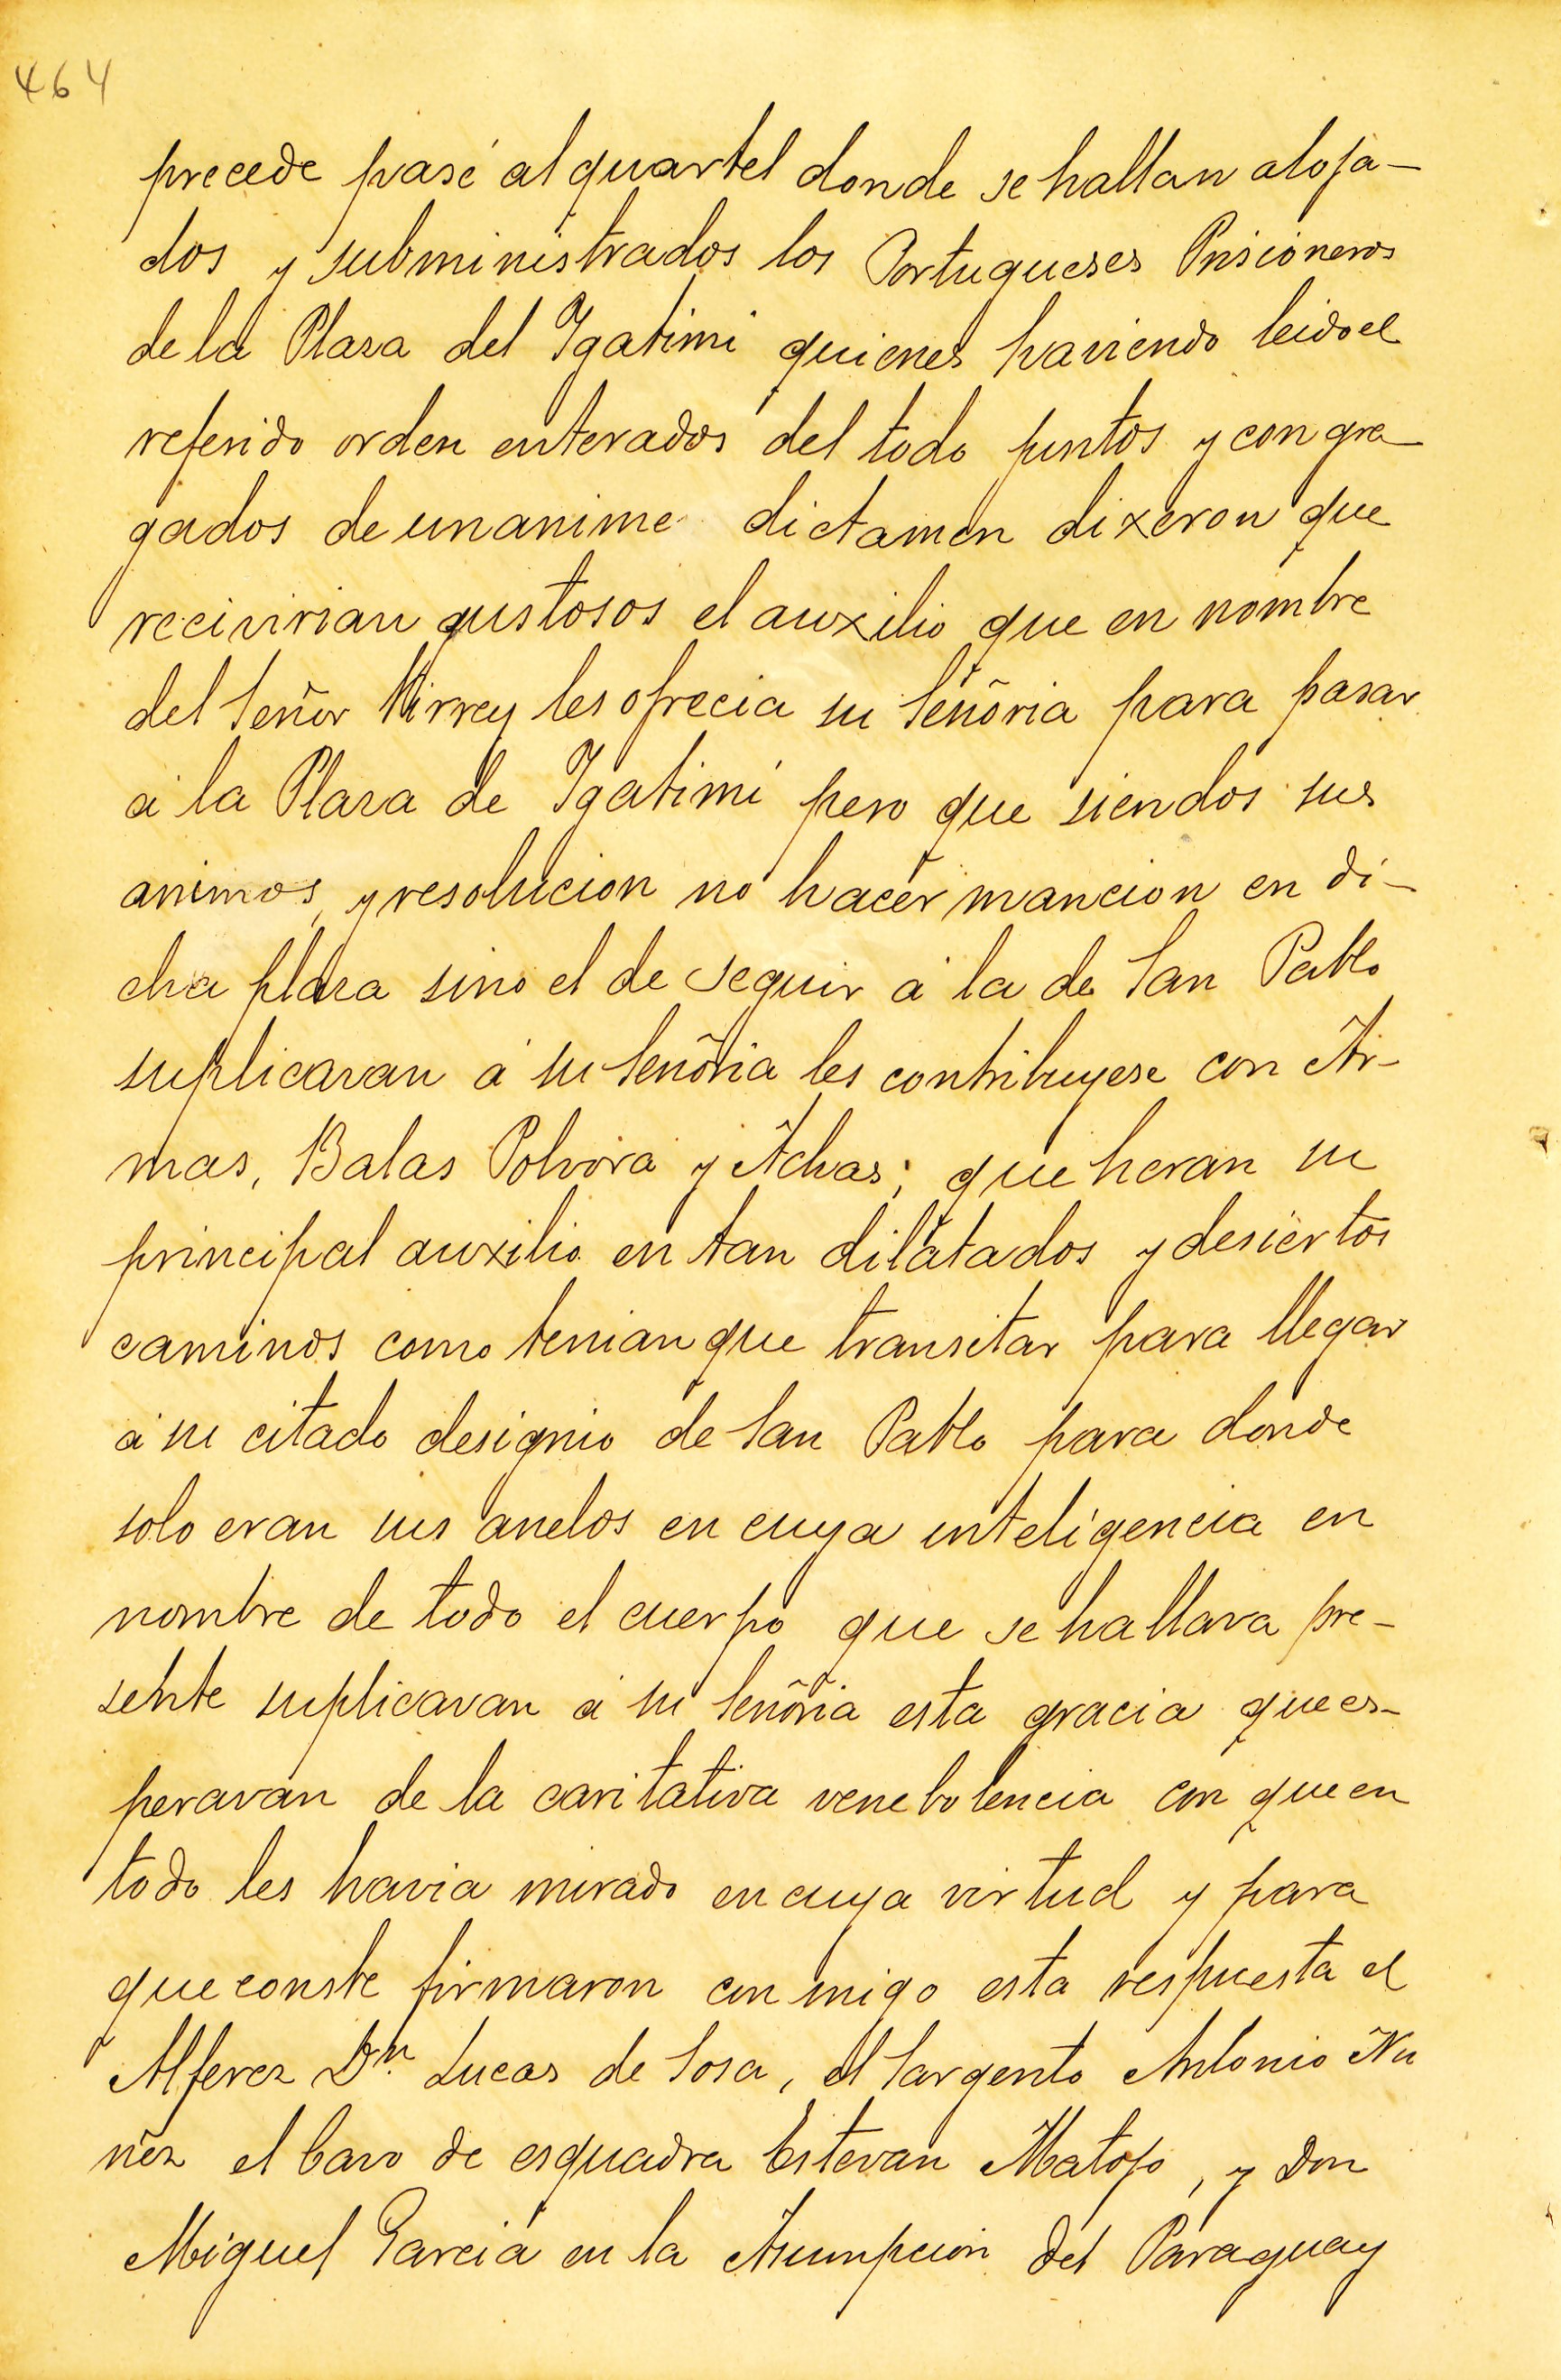 464
precede pasé al quartel donde se hallan aloja-
dos y subministrados los Portugueses Prisioneros
de la Plaza del Ygatimi quienes haviendo leido el
referido orden enterados del todo juntos y congre-
gados de unanime dictamen dixeron que
recivirian gustosos el auxilio que en nombre
del Señor Virrey les ofrecia su Señoria para pasar
á la Plaza de Ygatimi pero que siendos sus
animos, y resolucion no hacer mancion en di-
cha plaza sino el de seguir á la de San Pablo
suplicavan á su Señoria les contribuyese con Ar-
mas, Balas Polvora y Achas; que heran su
principal auxilio en tan dilatados y desiertos
caminos como tenian que transitar para llegar
á su citado designio de San Pablo para donde
solo eran sus anelos en cuya inteligencia en
nombre de todo el cuerpo que se hallava pre-
sente suplicavan á su Señoria esta gracia que es-
peravan de la caritativa venebolencia con que en
todo les havia mirado en cuya virtud y para
que conste firmaron con migo esta respuesta el
Alferez Dn. Lucas de Sosa, el Sargento Antonio Nu
ñez el Cavo de esquadra Estevan Matoso, y Don
Miguel Garcia en la Asumpcion del Paraguay